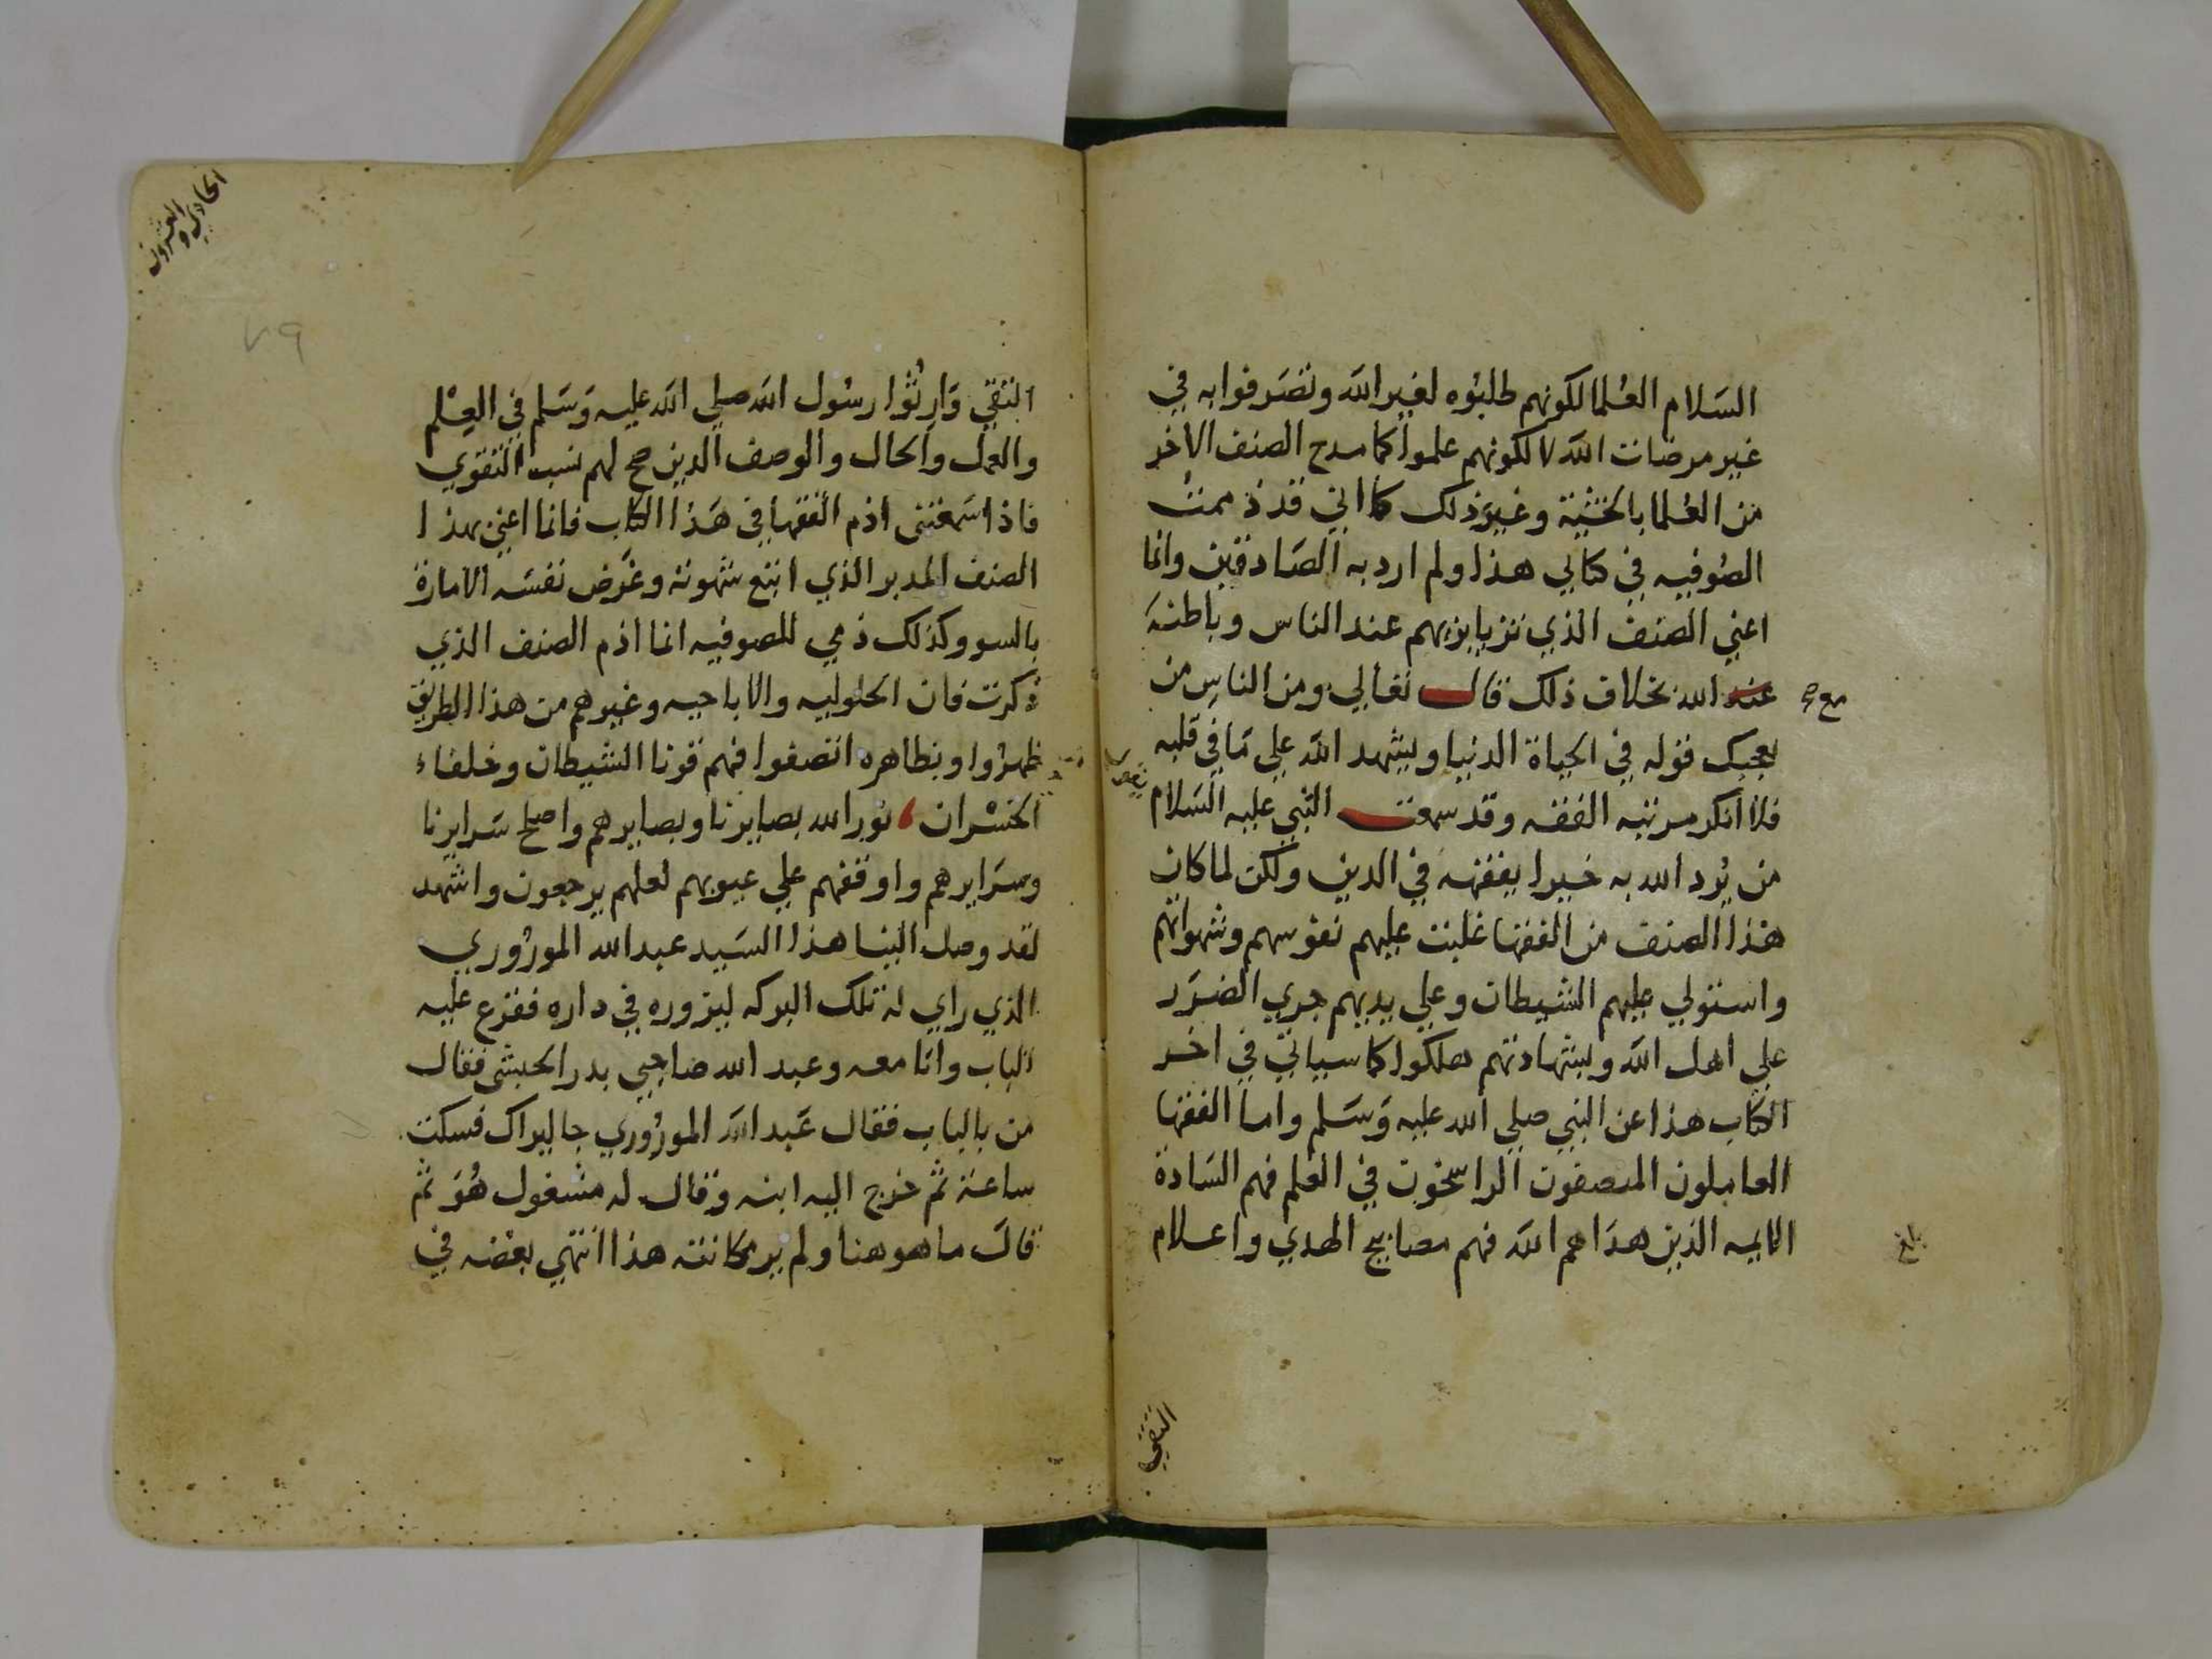 السلام العلما لكونهم طلبوه لغير الله وتصرفوا به في
غير مرضات الله لا لكونهم علموا كما مدح الصنف الاخر
من العلما بالخشية وغير ذلك كما اني قد ذممت
الصوفيه في كتابي هذا ولم ارد به الصادقين وانما
اعني الصنف الذي تزيا بزيهم عند الناس وباطنه
عند الله بخلاف ذلك قال تعالي ومن الناس من
مع صح
يعجبك قوله في الحياة الدنيا ويشهد الله علي ما في قلبه
فلا انكر مرتبه الفقه وقد سمعت النبي عليه السلام
من يرد الله به خيرا يفقهه في الدين ولكن لما كان
هذا الصنف من الفقها غلبت عليهم نفوسهم وشهواتهم
واستولي عليهم الشيطان وعلي يديهم جري الضرر
علي اهل الله وبشهادتهم هلكوا كما سياتي في اخر
الكتاب هذا عن النبي صلي الله عليه وسلم واما الفقها
العاملون المنصفون الراسخون في العلم فهم السادة
الايمه الذين هداهم الله فهم مصابيح الهدي واعلام
بلغ
التقي
الحادي والعشرون
٧٩
التقي وارثوا رسول الله صلي الله عليه وسلم في العلم
والعمل والحال والوصف الذين صح لهم نسب التقوي
فاذا سمعتني اذم الفقها في هذا الكتاب فانما اعني بهذا
الصنف المدبر الذي اتبع شهوته وغرض نفسه الامارة
بالسو وكذلك ذمي للصوفيه انما اذم الصنف الذي
ذكرت فان الحلوليه والاباحيه وغيرهم من هذا الطريق
ظهروا وبظاهره اتصفوا فهم قرنا الشيطان وخلفاء
الخسران نور الله بصايرنا وبصايرهم واصلح سرايرنا
وسرايرهم واوقفهم علي عيوبهم لعلهم يرجعون واشهد
لقد وصل الينا هذا السيد عبد الله الموروري
الذي راي له تلك البركه ليزوره في داره فقرع عليه
الباب وانا معه وعبد الله صاحبي بدر الحبشي فقال
من بالباب فقال عبد الله الموروري جا ليراك فسكت
ساعة ثم خرج اليه ابنه وقال له مشغول هو ثم
قال ما هو هنا ولم ير مكانته هذا انتهي بغضه في